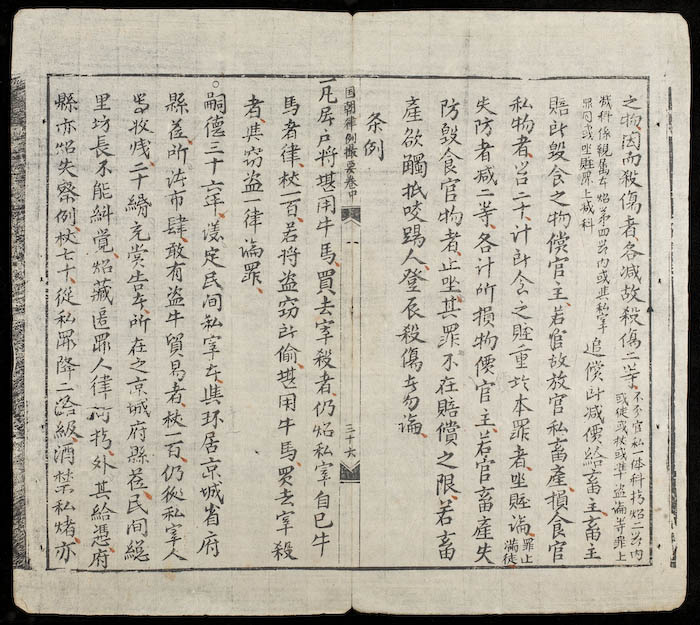 之物因而殺傷者各减故殺傷二等
不分官私一体科指炤二条内
或徒或杖或準盗論等罪上
减科係親属亦炤第四条内或與私宰
罪同或坐賍罪上减科
追償所减價給畜主畜主
賠所毀食之物償官主若官故放官私畜產損食官
私物者笞二十計所食之賍重於本罪者坐賍論
罪止
滿徒
失防者减二等各計所損物價官主若官畜產失
防毀食官物者止坐其罪不在賠償之限若畜
產欲觸抵咬踢人登辰殺傷者勿論
条例
国朝律例撮要卷中
三十六
一凡屠户將堪用牛馬買去宰殺者仍炤私宰自己牛
馬者律杖一百若將盗窃所偷堪用牛馬買去宰殺
者與窃盗一律論罪
○嗣德三十六年議定民間私宰與环居京城省府
縣莅所法市肆敢有盗牛貿易者杖一百仍從私宰人
爲收戋二十緡充賞告者所在之京城府縣莅民間總
里坊長不能糾覚炤藏匿罪人律外其給憑府
縣亦炤失察例杖七十從私罪降二級酒禁私煑亦